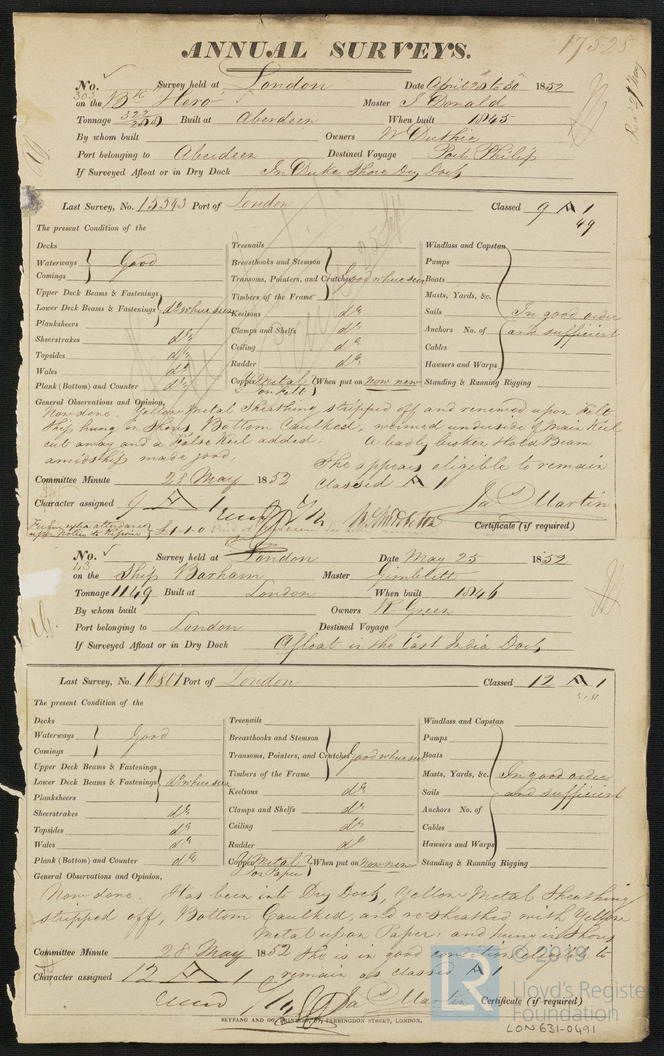 17528
ANNUAL SURVEYS.
No. 303 Survey held at London Date April 28 to 30 1852
on the Bk Hero Master J Donald
Tonnage 322 Built at Aberdeen When built 1845
By whom built Owners W Duthie
Port belonging to Aberdeen Destined Voyage Port Philip
If Surveyed Afloat or in Dry Dock In Duke Shore Dry Dock
Last Survey, No. 15343 Port of London Classed 9 A 1
49
The present Condition of the
Decks
Waterways
Comings
Good
Upper Deck Beams & Fastenings
Lower Deck Beams & Fastenings
Planksheers
do where seen
Sheerstrakes do
Topsides do
Wales do
Plank (Bottom) and Counter do
Treenails
Breasthooks and Stemson
Transoms, Pointers, and Crutches
Timbers of the Frame
Good where seen
Keelsons do
Clamps and Shelfs do
Ceiling do
Rudder do
Copper Y Metal on Felt When put on Now new
Windlass and Capstan
Pumps
Boats
Masts, Yards, &c.
Sails
Anchors No. of
Cables
Hawsers and Warps
In good order and sufficient
Standing & Running Rigging
General Observations and Opinion,
Now done. Yellow Metal Sheathing stripped off and renewed upon Felt
Ship hung in Shores, Bottom Caulked, underside of Main Keel
cut away and a False Keel added. A badly broken Hold Beam
amidship made good.
She appears eligible to remain
Classed A 1
Committee Minute 28 May 1852
Character assigned 9 A 1
Ja Martin
Certificate (if required)
For extra attendance
£1-1-0
No. 43 Survey held at London Date May 25 1852
on the Ship Barham Master Gimblett
Tonnage 1149 Built at London When built 1846
By whom built Owners R Green
Port belonging to London Destined Voyage
If Surveyed Afloat or in Dry Dock Afloat in the East India Dock
Last Survey, No. 16801 Port of London Classed 12 A 1
The present Condition of the
Decks
Waterways
Comings
Good
Upper Deck Beams & Fastenings
Lower Deck Beams & Fastenings
Planksheers
do where seen
Sheerstrakes do
Topsides do
Wales do
Plank (Bottom) and Counter do
Treenails
Breasthooks and Stemson
Transoms, Pointers, and Crutches
Timbers of the Frame
Good where seen
Keelsons do
Clamps and Shelfs do
Ceiling do
Rudder do
Copper Y Metal on Paper When put on Now new
Windlass and Capstan
Pumps
Boats
Masts, Yards, &c.
Sails
Anchors No. of
Cables
Hawsers and Warps
In good order and sufficient
Standing & Running Rigging
General Observations and Opinion,
Now done. Has been into Dry Dock, Yellow Metal Sheathing
stripped off, Bottom Caulked, and re-sheathed with Yellow
Metal upon Paper; and hung in Shores
She is in good condition eligible to
remain as classed A 1
Committee Minute 28 May 1852
Character assigned 12 A 1
Ja Martin
Certificate (if required)
SEYFANG AND CO. PRINTERS, 57, FARRINGDON STREET, LONDON.
© 2019
LR
Lloyd's Register
Foundation
LON631-0491